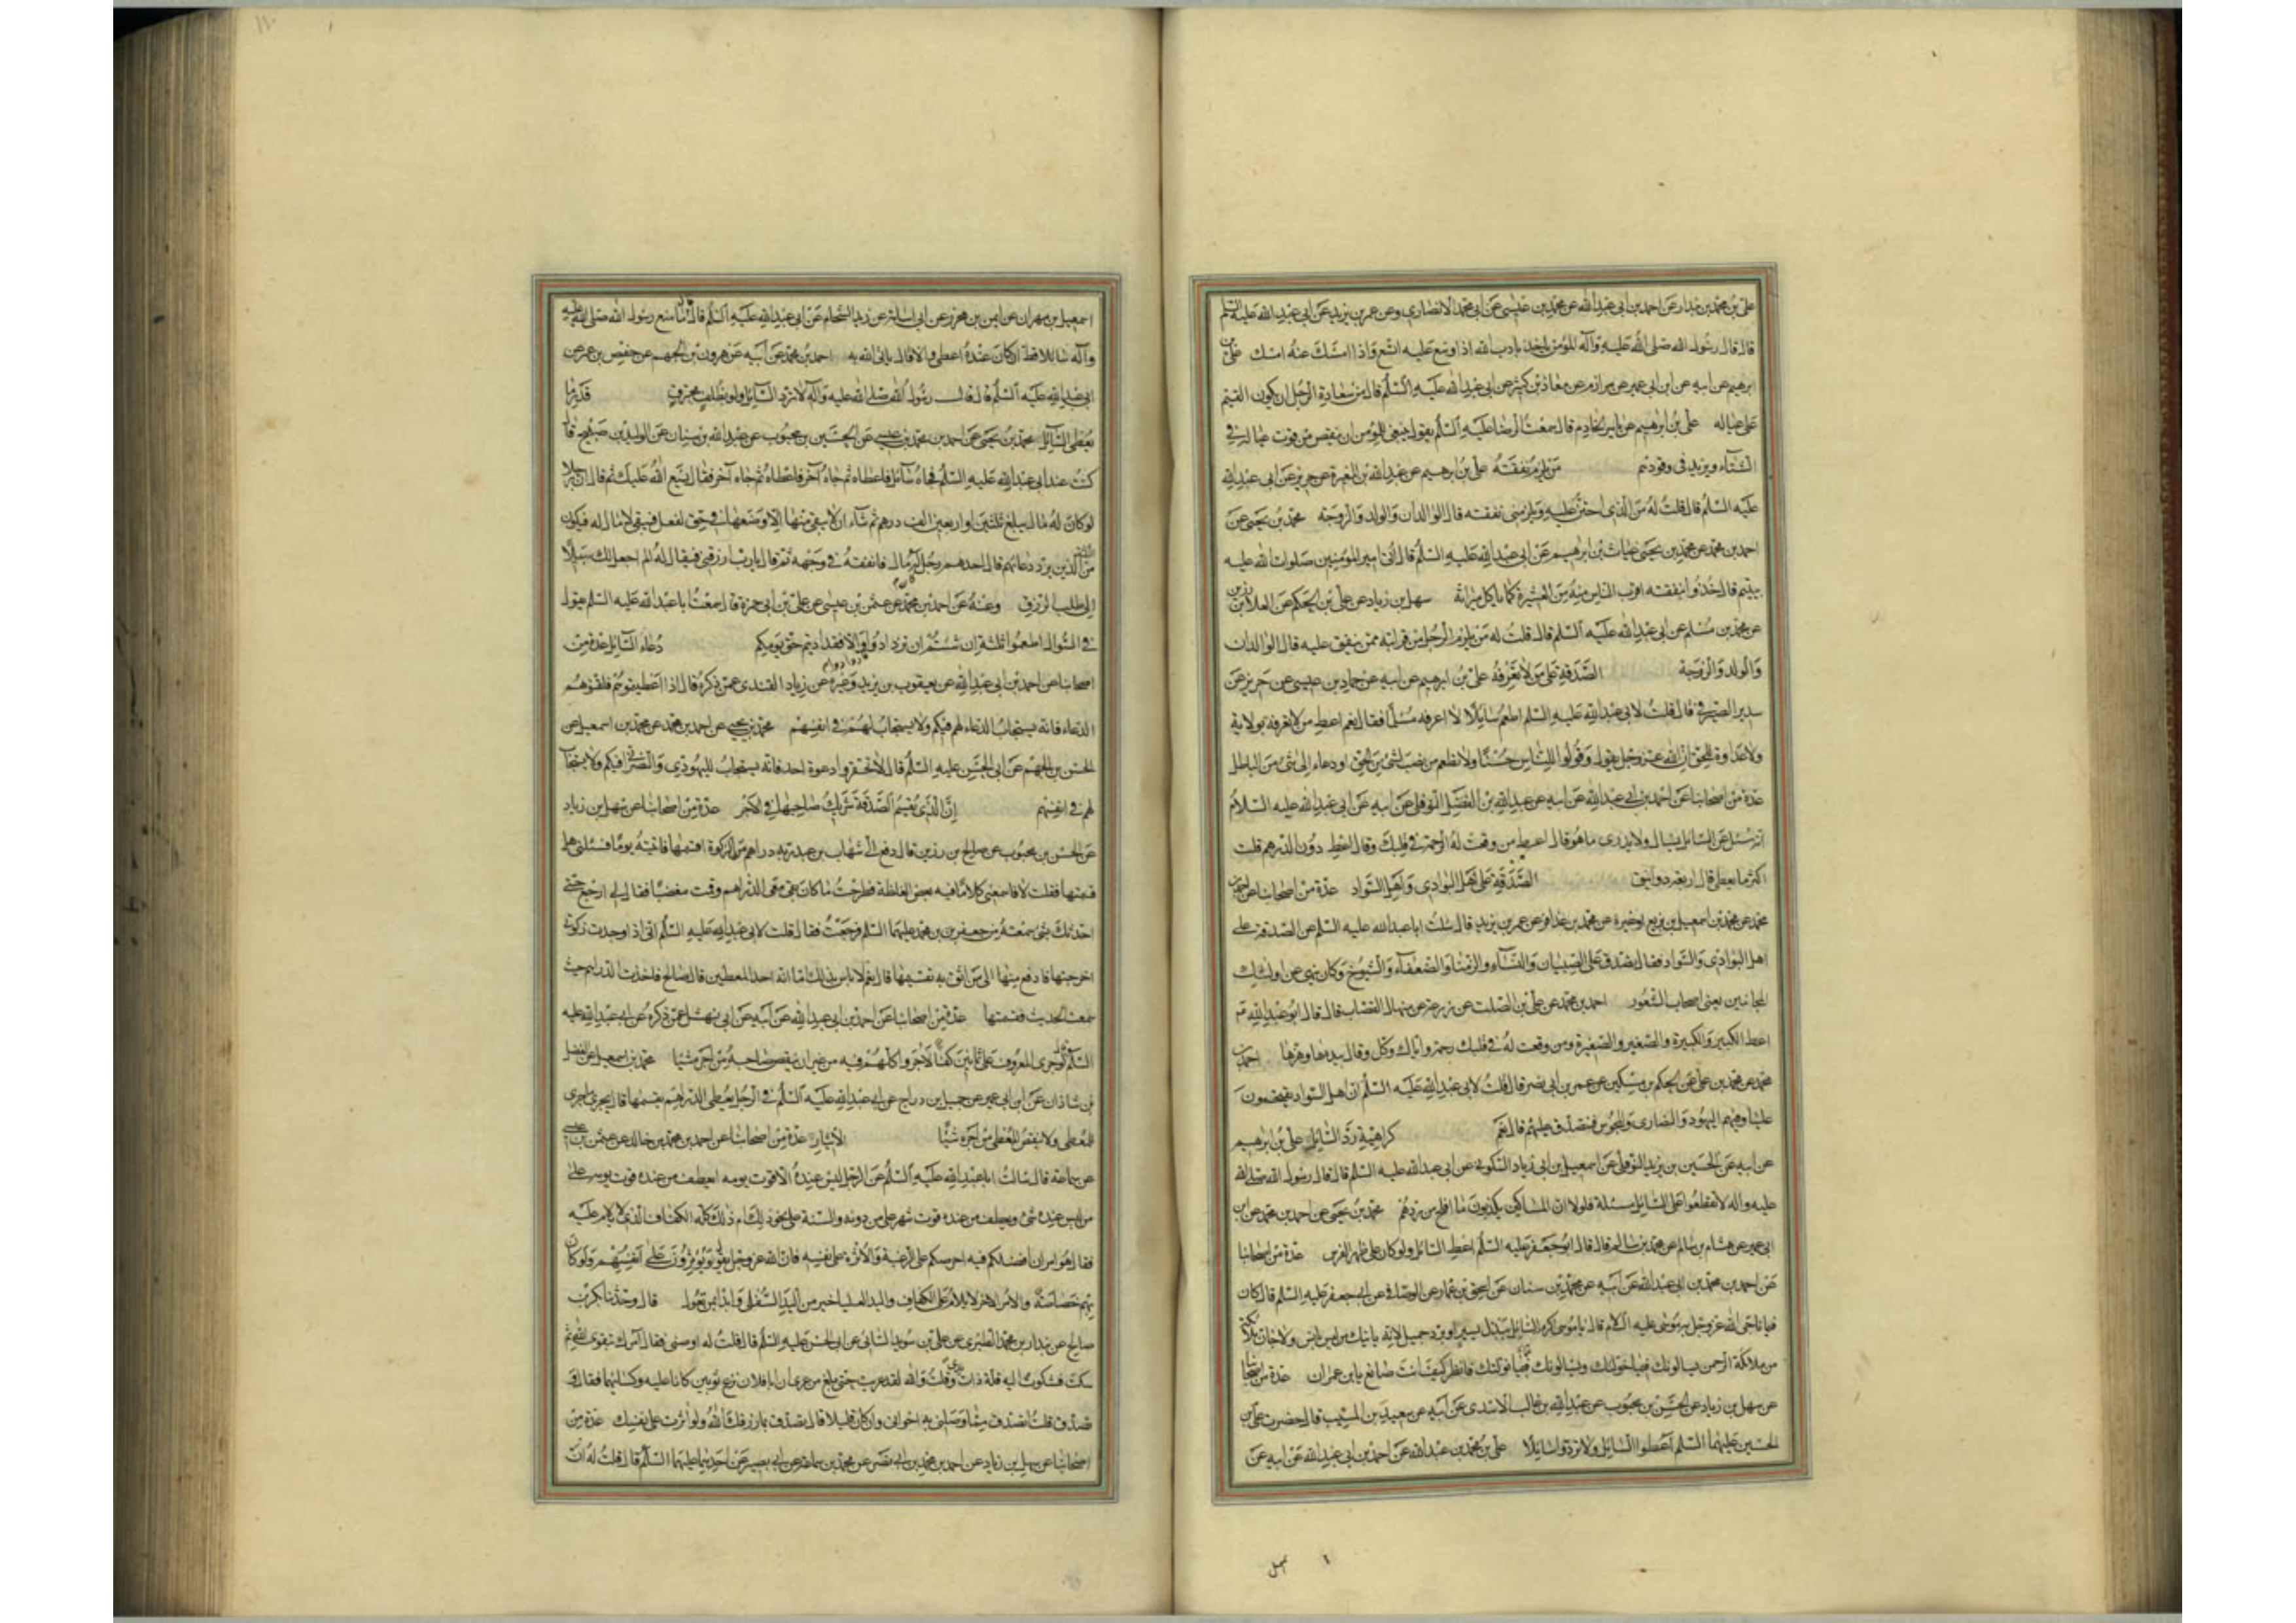 علي بن محمد بن بندار عن احمد بن ابي عبد الله عن محمد بن عيسى عن ابي محمد الانصاري وعن عمر بن يزيد عن ابي عبد الله عليه السلم
قال قال رسول الله صلى الله عليه وآله المؤمن ياخذ بادب الله اذا اوسع عليه اتسع واذا امسك عنه امسك علي بن
ابرهيم عن ابيه عن ابن ابي عمير عن مرازم عن معاذ بن كثير عن ابي عبد الله عليه السلم قال من سعادة الرجل ان يكون القيم
على عياله علي بن ابرهيم عن ياسر الخادم قال سمعت الرضا عليه السلم يقول ينبغي للمؤمن ان ينقص من قوت عياله في
الشتاء ويزيد في وقودهم من يلزم نفقته علي بن ابرهيم عن عبد الله بن المغيرة عن حريز عن ابي عبد الله
عليه السلم قال قلت له من الذي احتن عليه ويلزمني نفقته قال الوالدان والولد والزوجة محمد بن يحيى عن
احمد بن محمد عن محمد بن يحيى غياث بن ابرهيم عن ابي عبد الله عليه السلم قال اتى امير المؤمنين صلوات الله عليه
بيتيم قال خذوا بنفقته اقرب الناس منه من العشيرة كما ياكل ميراثه سهل بن زياد عن علي بن الحكم عن العلا بن رزين
عن محمد بن مسلم عن ابي عبد الله عليه السلم قال قلت له من يلزم الرجل من قرابته ممن ينفق عليه قال الوالدان
والولد والزوجة الصدقة على من لا تعرفه علي بن ابرهيم عن ابيه عن حماد بن عيسى عن حريز عن
سدير الصيرفي قال قلت لابي عبد الله عليه السلم اطعم سايلا لا اعرفه مسلما فقال نعم اعط من لا تعرفه بولاية
ولا عداوة للحق ان الله عز وجل يقول وقولوا للناس حسنا ولا تطعم من نصب لشئ من الحق او دعاء الى شئ من الباطل
عدة من اصحابنا عن احمد بن ابي عبد الله عن ابيه عن عبد الله بن الفضل النوفلي عن ابيه عن ابي عبد الله عليه السلام
انه سئل عن السائل يسال ولا يدرى ما هو قال اعط من وقعت له الرحمة في قلبك وقال اعط دون الدرهم قلت
اكثر ما يعطى قال اربعة دوانيق الصدقة على اهل البوادي واهل السواد عدة من اصحابنا عن احمد بن
محمد عن محمد بن اسمعيل بن بزيع او غيره عن محمد بن عذافر عن عمر بن يزيد قال سئلت ابا عبد الله عليه السلم عن الصدقة على
اهل البوادي والسواد فقال تصدق على الصبيان والنساء والزمنا والضعفاء والشيوخ وكان ينهى عن اولئك
المجانين يعني اصحاب الشعور احمد بن محمد عن علي بن الصلت عن زرعة عن منهال القصاب قال قال ابو عبد الله ع
اعط الكبير والكبيرة والصغير والصغيرة ومن وقعت له في قلبك رحمة واياك وكل وقال بيده وهزها احمد بن
محمد عن محمد بن علي عن الحكم بن مسكين عن عمر بن ابي نصر قال قلت لابي عبد الله عليه السلم ان اهل السواد يقتحمون
علينا وفيهم اليهود والنصارى والمجوس فنتصدق عليهم قال نعم كراهية رد السائل علي بن ابرهيم
عن ابيه عن الحسين بن يزيد النوفلي عن اسمعيل بن ابي زياد السكوني عن ابي عبد الله عليه السلم قال قال رسول الله صلى الله
عليه وآله لا تقطعوا على السائل مسئلة فلولا ان المساكين يكذبون ما افلح من ردهم محمد بن يحيى عن احمد بن محمد عن ابن
ابي عمير عن هشام بن سالم عن محمد بن مسلم قال قال ابو جعفر عليه السلم اعط السائل ولو كان على ظهر الفرس عدة من اصحابنا
عن احمد بن محمد بن ابي عبد الله عن ابيه عن محمد بن سنان عن اسحق بن عمار عن الوصافي عن ابي جعفر عليه السلم قال كان
فيما ناجى الله عز وجل به موسى عليه السلام قال يا موسى اكرم السائل ببذل يسير او برد جميل لانه ياتيك من ليس بانس ولا جان ملائكة
من ملائكة الرحمن يسالونك فيما خولتك ويسالونك فيما نولتك فانظر كيف انت صانع يا بن عمران عدة من اصحابنا
عن سهل بن زياد عن الحسن بن محبوب عن عبد الله بن غالب الاسدي عن ابيه عن سعيد بن المسيب قال حضرت علي بن
الحسين عليهما السلم اعطوا السائل ولا تردوا سائلا علي بن محمد بن عبد الله عن احمد بن ابي عبد الله عن ابيه عن
سهل
اسمعيل بن مهران عن ايمن بن محرز عن ابي اسامة عن زيد الشحام عن ابي عبد الله عليه السلم قال ما منع رسول الله صلى الله عليه
وآله سائلا قط ان كان عنده اعطى والا قال ياتي الله به احمد بن محمد عن ابيه عن هرون بن الجهم عن حفص بن عمر عن
ابي عبد الله عليه السلم قال قال رسول الله صلى الله عليه وآله لا ترد السائل ولو بظلف محترق قدر ما
يعطى السائل محمد بن يحيى عن احمد بن محمد بن عيسى عن الحسين بن محبوب عن عبد الله بن سنان عن الوليد بن صبيح قال
كنت عند ابي عبد الله عليه السلم فجاءه سائل فاعطاه ثم جاءه آخر فاعطاه ثم جاءه آخر فقال يسع الله عليك ثم قال ان رجلا
لو كان له مال يبلغ ثلثين او اربعين الف درهم ثم شاء ان لا يبقى منها الا وضعها في حق لفعل فيبقى لا مال له فيكون
من الثلثة الذين يرد دعائهم قال احدهم رجل كان له مال فانفقه في وجهه ثم قال يا رب ارزقني فيقال له الم اجعل لك سبيلا
الى طلب الرزق وعنه عن احمد بن محمد عن عثمن بن عيسى عن علي بن ابي حمزة قال سمعت ابا عبد الله عليه السلم يقول
في السوال اطعموا ثلثة ان شئتم ان تزدادوا والا فقد اديتم حق يومكم دعاء السائل عدة من
اصحابنا عن احمد بن ابي عبد الله عن يعقوب بن يزيد وغيره عن زياد القندي عمن ذكره قال اذا اعطيتموهم فلقنوهم
الدعاء فانه يستجاب الدعاء لهم فيكم ولا يستجاب لهم في انفسهم محمد بن يحيى عن احمد بن محمد عن محمد بن اسمعيل عن
الحسن بن الجهم عن ابي الحسن عليه السلم قال لا تحقروا دعوة احد فانه يستجاب لليهودي والنصراني فيكم ولا يستجاب
لهم في انفسهم ان الذي يقسم الصدقة شريك صاحبها في الاجر عدة من اصحابنا عن سهل بن زياد
عن الحسن بن محبوب عن صالح بن رزين قال دفع الي شهاب بن عبد ربه دراهم من الزكوة اقسمها فاتيته يوما فسئلني هل
قسمتها فقلت لا فاسمعني كلاما فيه بعض الغلظة فطرحت ما كان بقي معي الدراهم وقمت مغضبا فقال لي ارجع حتى
احدثك بشئ سمعته من جعفر بن محمد عليهما السلم فرجعت فقال قلت لابي عبد الله عليه السلم اني اذا وجدت زكوتي
اخرجتها فادفع منها الى من اثق به يقسمها قال نعم لا باس بذلك اما انه احد المعطين قال صالح فاخذت الدراهم حيث
سمعت الحديث فقسمتها عدة من اصحابنا عن احمد بن ابي عبد الله عن ابيه عن ابي نهشل عمن ذكره عن ابي عبد الله عليه
السلم لو جرى المعروف على ثمانين كفا لاجروا كلهم فيه من غير ان ينقص صاحبه من اجره شيئا محمد بن اسمعيل عن الفضل
بن شاذان عن ابن ابي عمير عن جميل بن دراج عن ابي عبد الله عليه السلم في الرجل يعطى الدراهم يقسمها قال يجري ما جرى
للمعطي ولا ينقص المعطي من اجره شيئا الايثار عدة من اصحابنا عن احمد بن محمد بن خالد عن عثمن بن عيسى
عن سماعة قال سالت ابا عبد الله عليه السلم عن الرجل ليس عنده الا قوت يومه ايعطف من عنده قوت يومه على
من ليس عنده شئ ويعطف من عنده قوت شهر على من دونه والسنة على نحو ذلك ام ذلك كله الكفاف الذي لا يلام عليه
فقال هو امران افضلكم فيه احرصكم على الرغبة والاثرة على نفسه فان الله عز وجل يقول ويؤثرون على انفسهم ولو كان
بهم خصاصة والامر الآخر لا يلام على الكفاف واليد العليا خير من اليد السفلى وابدا بمن تعول قال وحدثنا بكر بن
صالح عن بندار بن محمد الطبري عن علي بن سويد السائي عن ابي الحسن عليه السلم قال قلت له اوصني فقال آمرك بتقوى الله ثم
سكت فشكوت اليه قلة ذات يدي وقلت والله لقد عريت حتى بلغ من عري ان ابا فلان نزع ثوبين كانا عليه وكسانيهما فقال
صدق قلت اتصدق مما وصلني به اخواني وان كان قليلا قال تصدق بما رزقك الله ولو آثرت على نفسك عدة من
اصحابنا عن سهل بن زياد عن احمد بن محمد بن ابي نصر عن محمد بن سماعة عن ابي بصير عن احدهما عليهما السلم قال قلت له اي